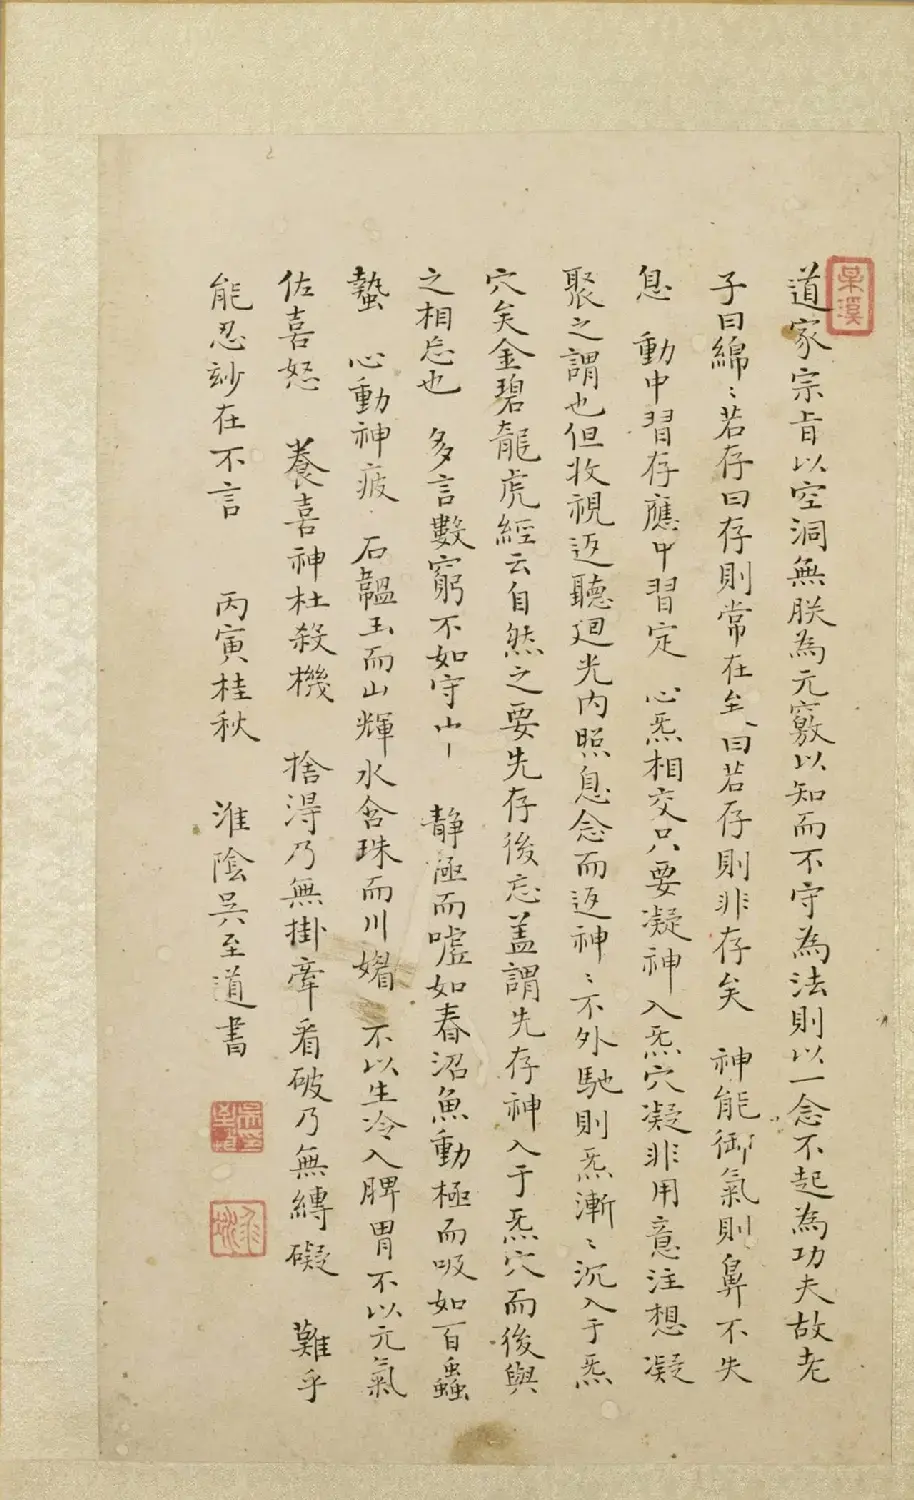 道家宗旨以空洞無朕為元竅以知而不守為法則以一念不起為功夫故老
子曰綿〻若存曰存則常在至曰若存則非存矣 神能御氣則鼻不失
息 動中習存應中習定 心炁相交只要凝神入炁穴凝非用意注想凝
聚之謂也但收視返聽迴光內照息念而返神〻不外馳則炁漸〻沉入于炁
穴矣金碧龍虎經云自然之要先存後忘蓋謂先存神入于炁穴而後與
之相忘也 多言數窮不如守中 靜極而噓如春沼魚動極而吸如百蟲
蟄 心動神疲 石韞玉而山輝水含珠而川媚 不以生冷入脾胃不以元氣
佐喜怒 養喜神杜殺機 捨淂乃無掛牽看破乃無縛礙 難乎
能忍玅在不言 丙寅桂秋 淮陰吳至道書